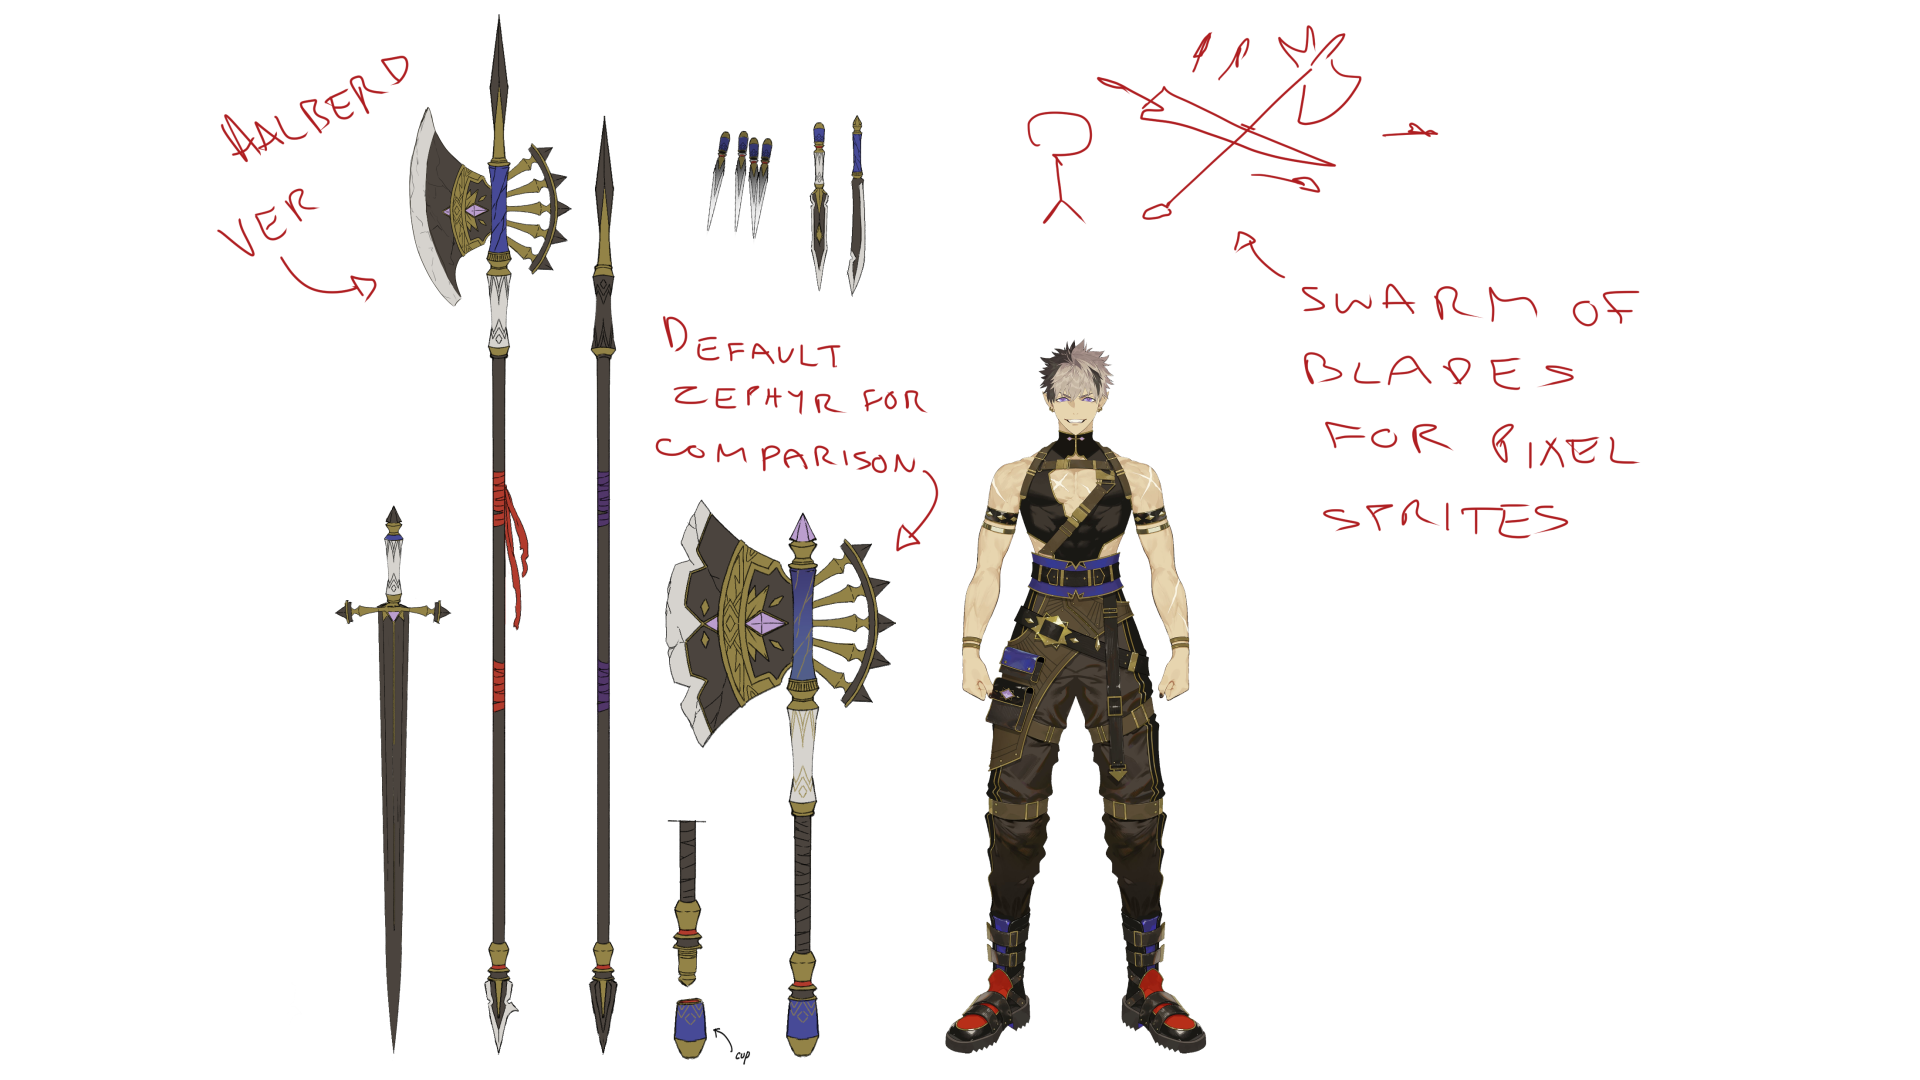 HALBERD
VER
DEFAULT
ZEPHYR FOR
COMPARISON
SWARM OF
BLADES
FOR PIXEL
SPRITES
cup